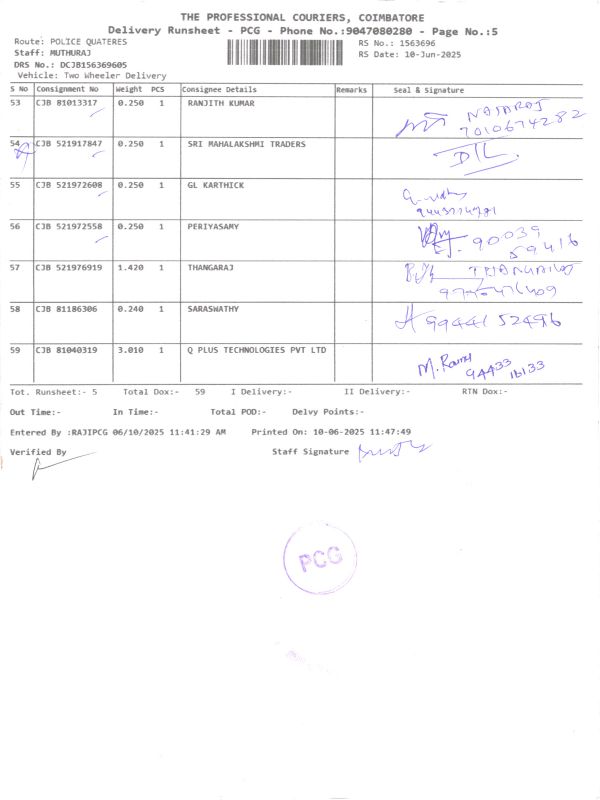 THE PROFESSIONAL COURIERS, COIMBATORE
Delivery Runsheet - PCG - Phone No.:9047080280 - Page No.:5
Route: POLICE QUATERES
RS No.: 1563696
Staff: MUTHURAJ
RS Date: 10-Jun-2025
DRS No.: DCJB156369605
Vehicle: Two Wheeler Delivery
S No Consignment No Weight PCS Consignee Details Remarks Seal & Signature
53 CJB 81013317 0.250 1 RANJITH KUMAR NAGARAJ
7010674282
54 CJB 521917847 0.250 1 SRI MAHALAKSHMI TRADERS
55 CJB 521972608 0.250 1 GL KARTHICK
56 CJB 521972558 0.250 1 PERIYASAMY 90039
59416
57 CJB 521976919 1.420 1 THANGARAJ
58 CJB 81186306 0.240 1 SARASWATHY 9944152496
59 CJB 81040319 3.010 1 Q PLUS TECHNOLOGIES PVT LTD
94433
Tot. Runsheet:- 5 Total Dox:- 59 I Delivery:- II Delivery:- RTN Dox:-
Out Time:- In Time:- Total POD:- Delvy Points:-
Entered By :RAJIPCG 06/10/2025 11:41:29 AM Printed On: 10-06-2025 11:47:49
Verified By Staff Signature
PCG